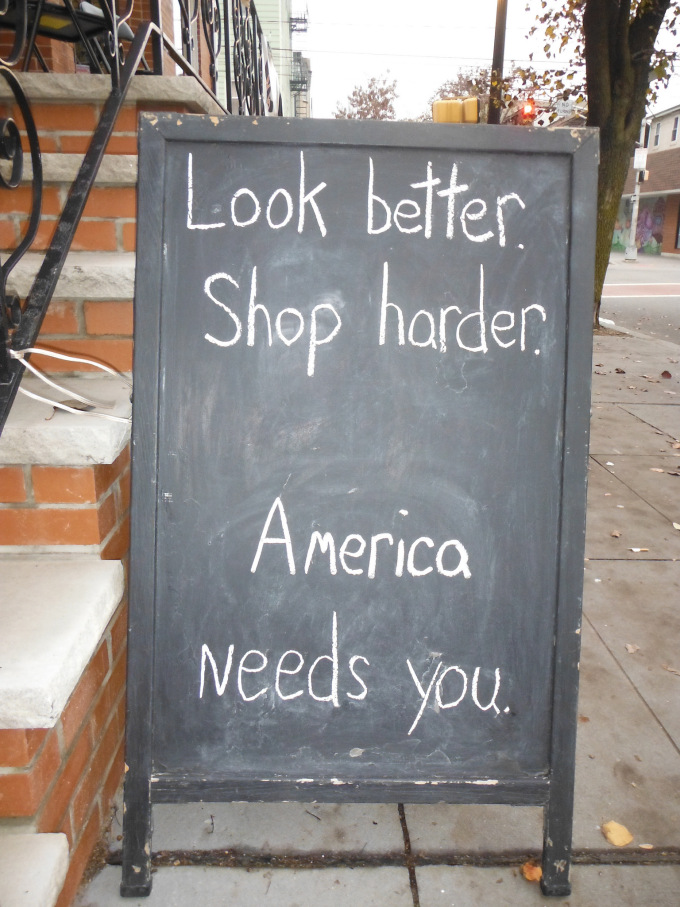 Look better.
Shop harder.
America
Needs you.